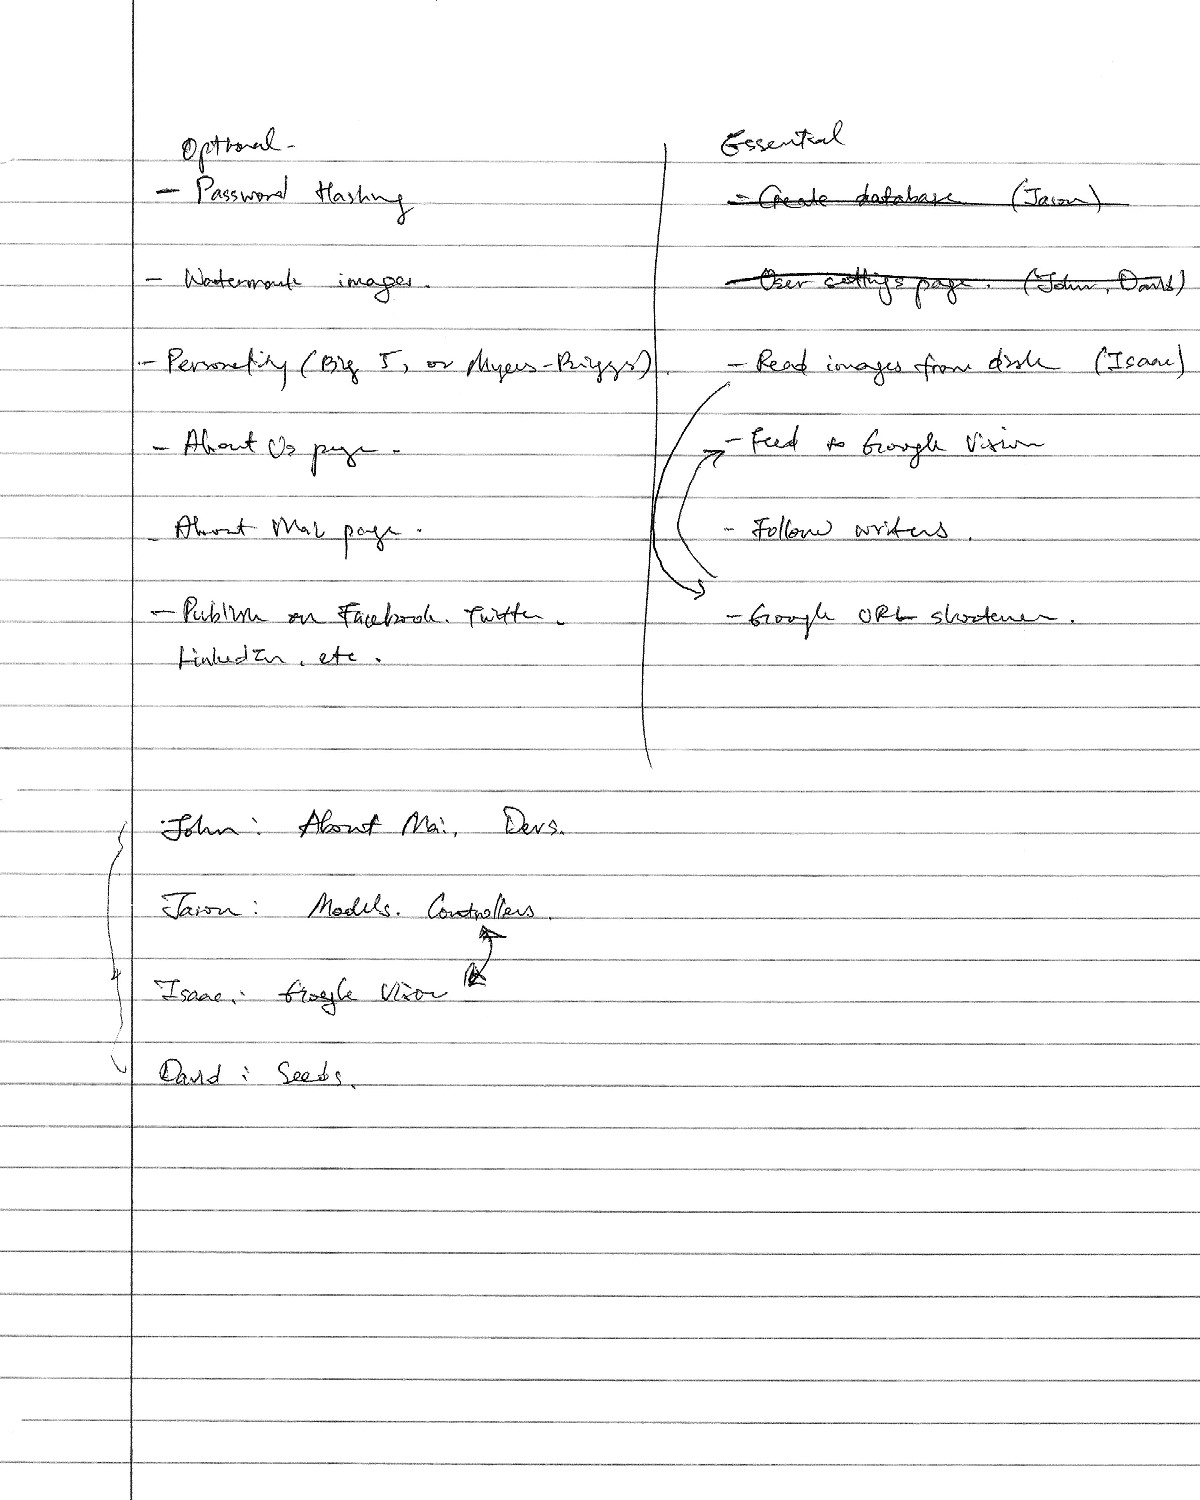 Optional -
- Password Hashing
- Watermark images.
- Personality (Big 5, or Myers-Briggs)
- About Us page.
- About Mai page.
- Publish on Facebook. Twitter.
LinkedIn, etc.
Essential
- Create database (Jason)
- User settings page. (John, David)
- Read images from disk (Isaac)
- Feed to Google Vision
- Follow writers.
- Google URL shortener.
John: About Mai, Devs.
Jason: Models. Controllers.
Isaac: Google Vision
David: Seeds.